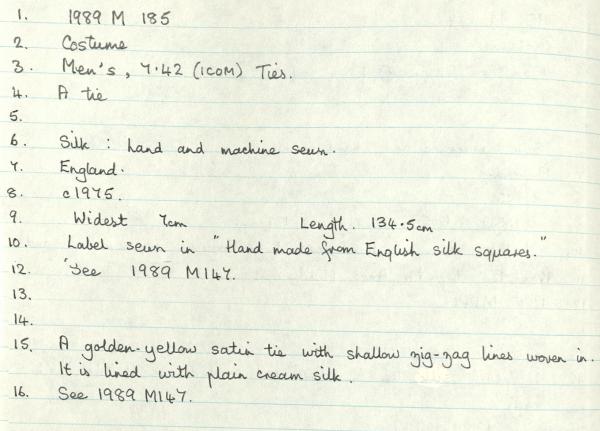 1. 1989 M 185
2. Costume
3. Men's, 7.42 (ICOM) Ties.
4. A tie
5.
6. Silk : hand and machine sewn.
7. England.
8. c1975.
9. Widest 7cm Length. 134.5cm
10. Label sewn in "Hand made from English silk squares."
12. See 1989 M147.
13.
14.
15. A golden-yellow satin tie with shallow zig-zag lines woven in.
It is lined with plain cream silk.
16. See 1989 M147.